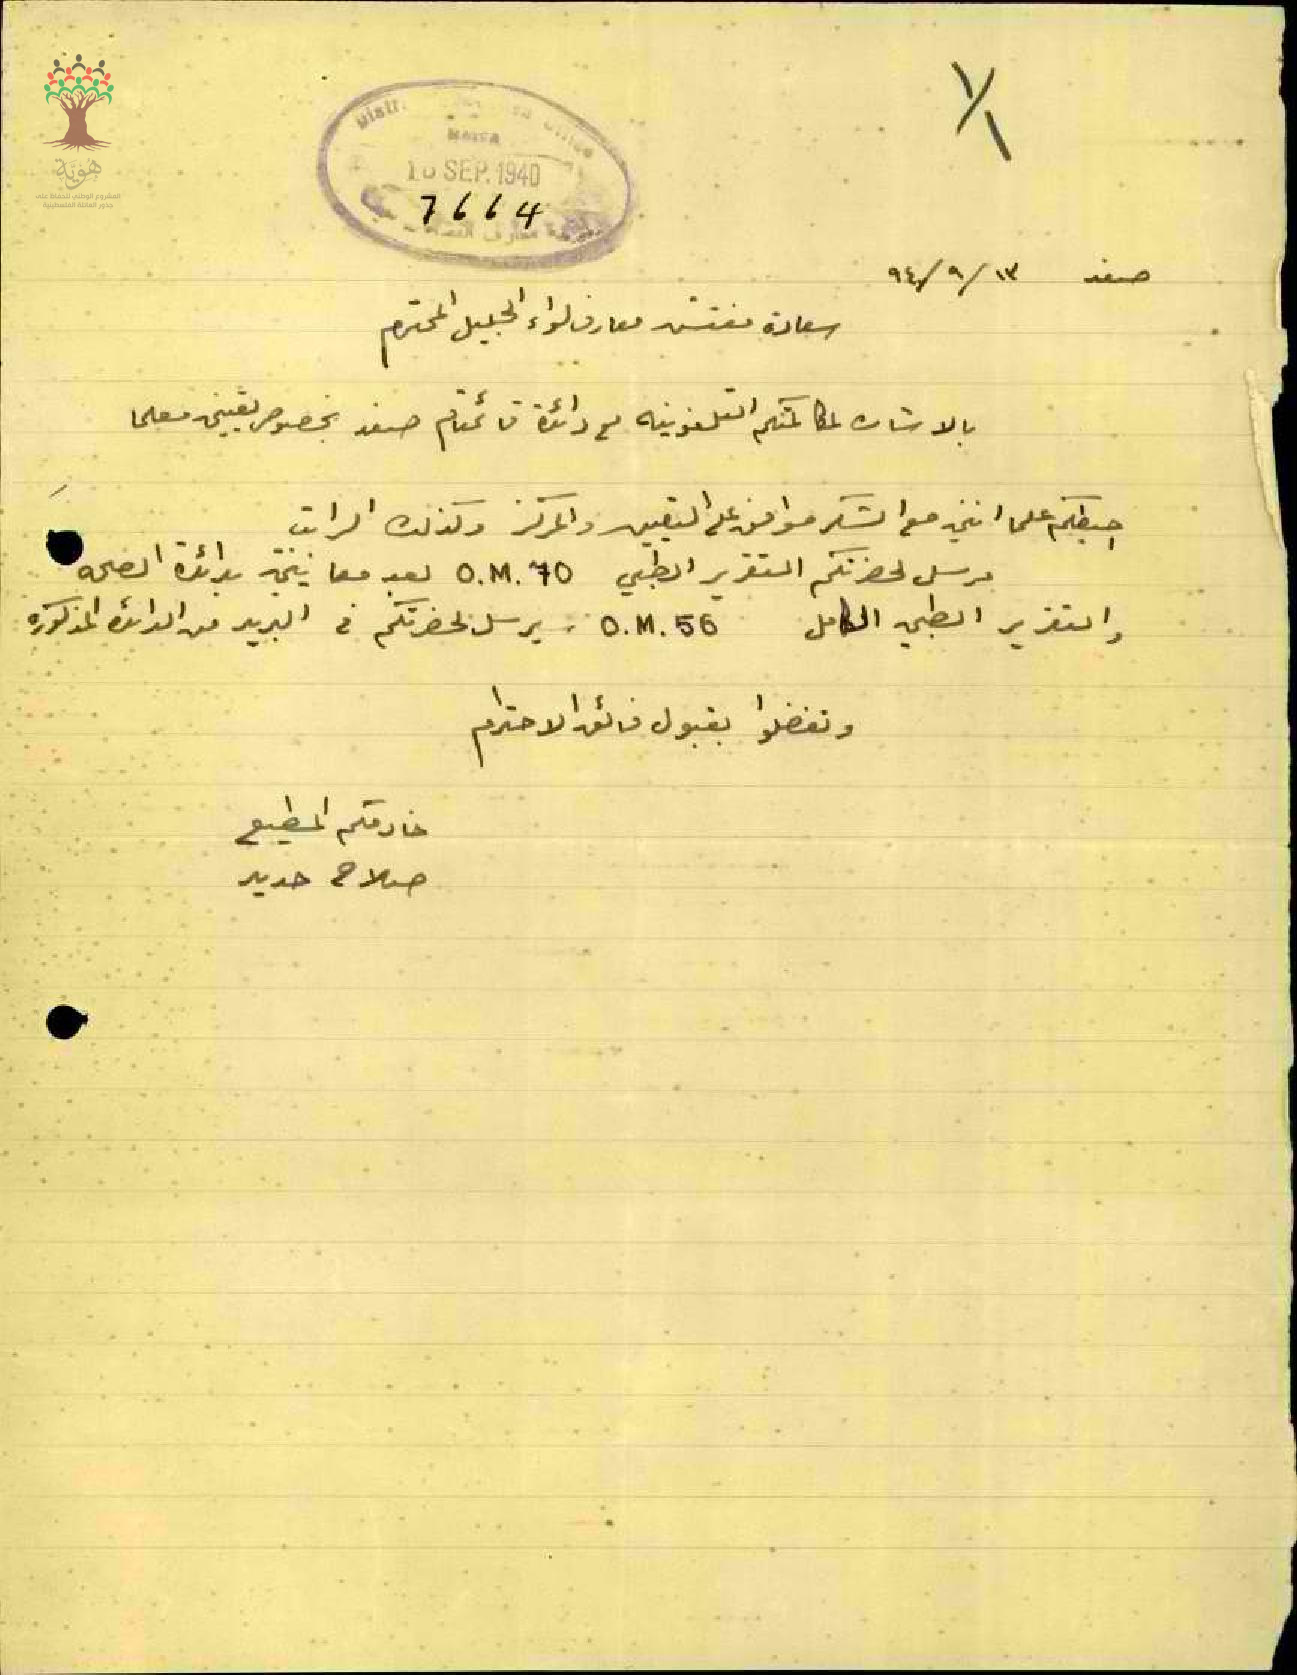 هَوِيَّة
المشروع الوطني للحفاظ على
جذور العائلة الفلسطينية
HAIFA
SEP. 1940
7664
صفد ١٣/٩/٩٤٠
سعادة مفتش معارف لواء الجليل المحترم
بالاشارة لمكالمتكم التلفونيه مع دائرة قائمقام صفد بخصوص تعييني معلما
احيطكم علما انني مع الشكر موافق على التعيين والمركز وكذلك الراتب
مرسل لحضرتكم التقرير الطبي O.M. 70 بعد معاينتي بدائرة الصحه
والتقرير الطبي الكامل O.M. 56 يرسل لحضرتكم في البريد من الدائرة المذكوره
وتفضلوا بقبول فائق الاحترام
خادمكم المطيع
صلاح حديد